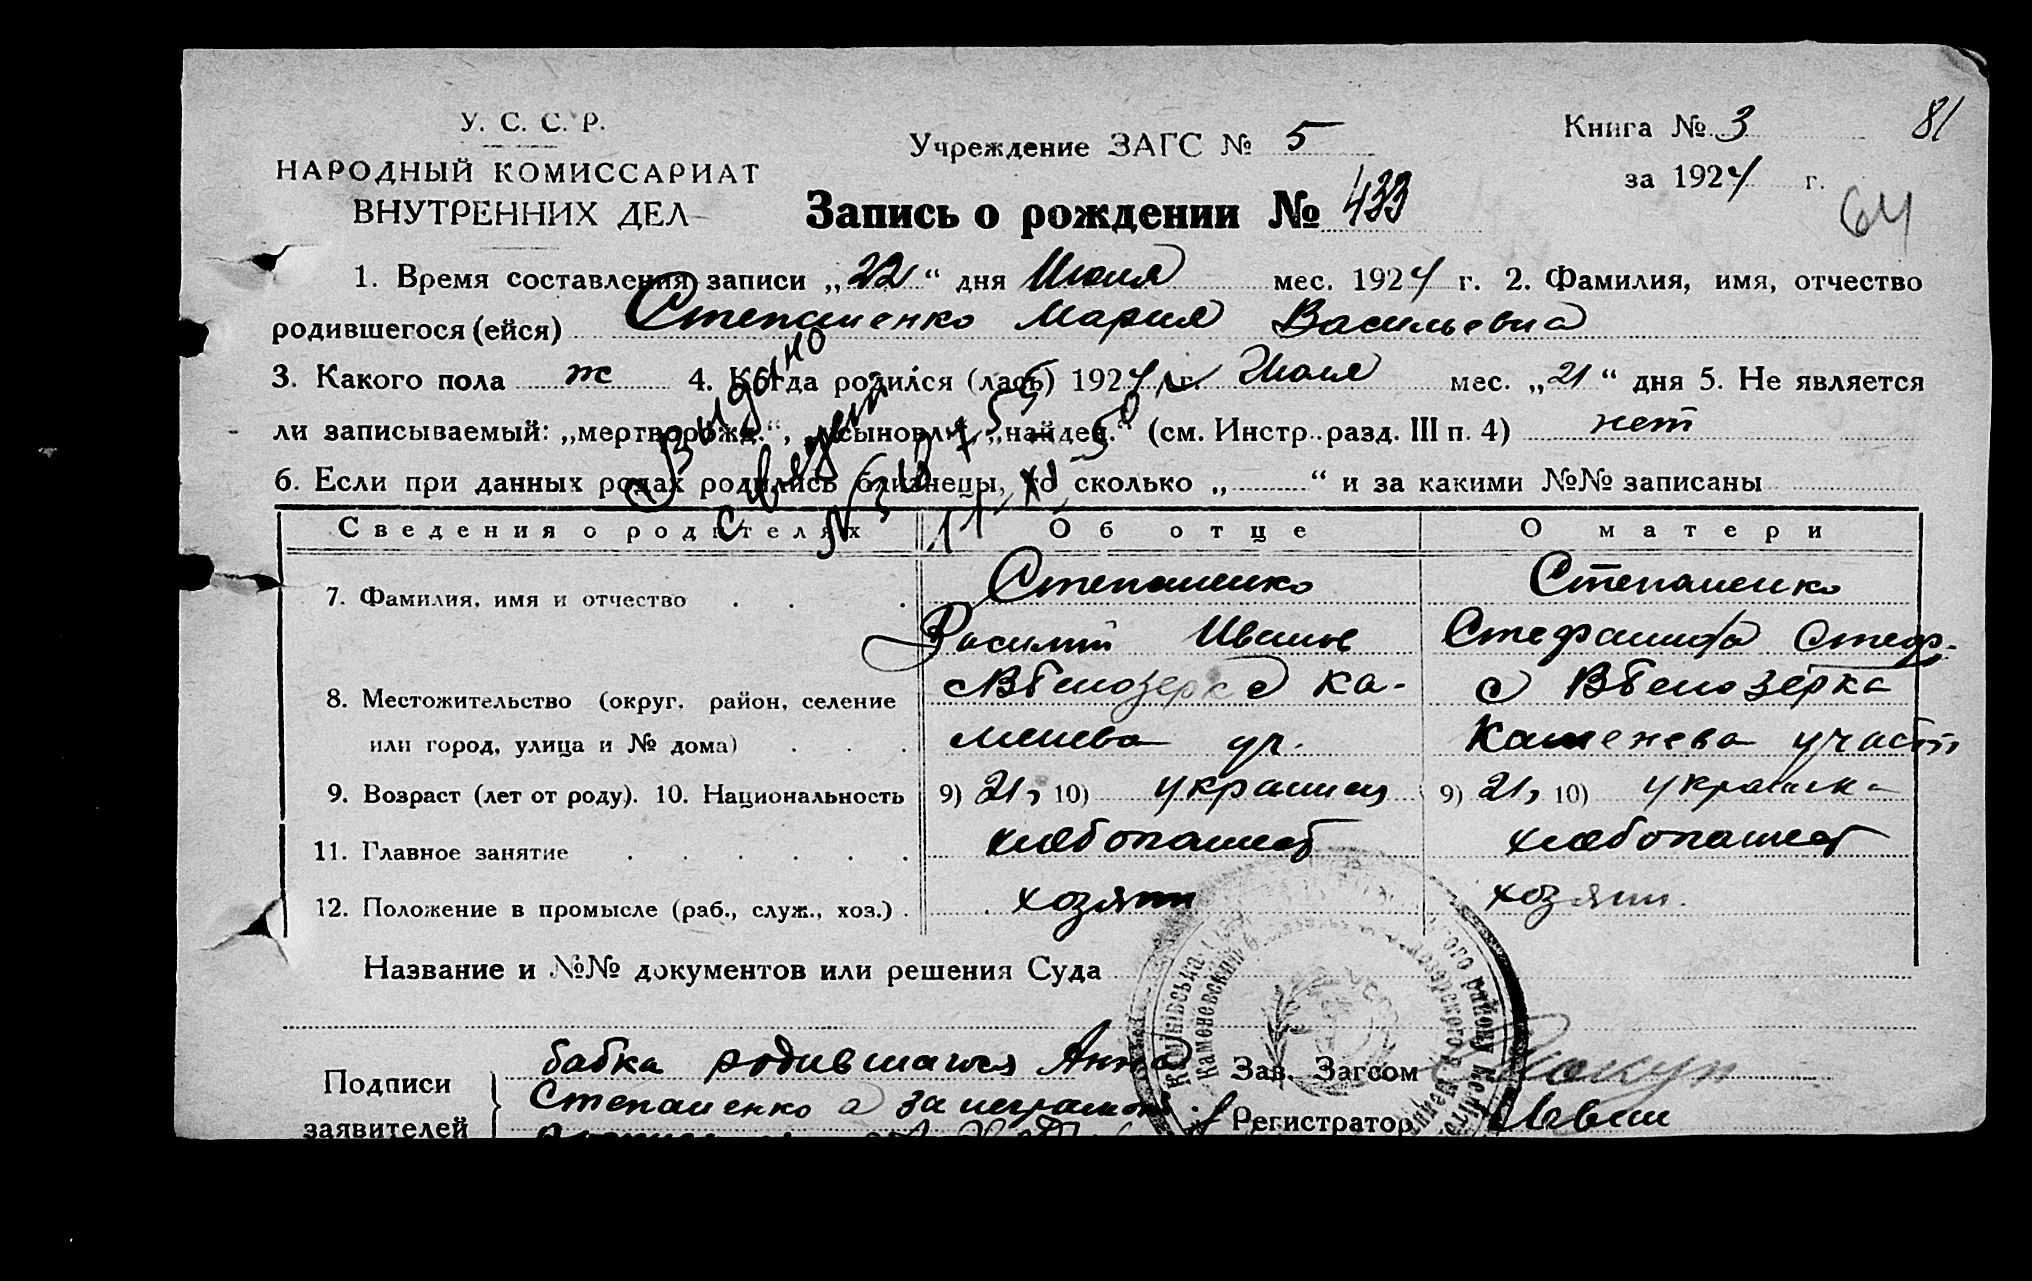 У. С. С. Р.
НАРОДНЫЙ КОМИССАРИАТ
ВНУТРЕННИХ ДЕЛ
Учреждение ЗАГС № 5
Книга № 3
81
за 1924 г.
64
Запись о рождении № 433
1. Время составления записи „22“ дня Июля мес. 1924 г. 2. Фамилия, имя, отчество
родившегося (ейся) Степаненко Мария Васильевна
3. Какого пола ж 4. Когда родился (лась) 1924 г. Июля мес. „21“ дня 5. Не является
ли записываемый: „мертворожд.“, „усыновл.“, „найден.“ (см. Инстр. разд. III п. 4) нет
6. Если при данных родах родились близнецы, то сколько „ “ и за какими №№ записаны
Выдано
Сведения о родителях Об отце О матери
7. Фамилия, имя и отчество Степаненко Степаненко
Василий Иванов Стефанида Стеф.
8. Местожительство (округ, район, селение с Вбелозерка Ка- с Вбелозерка
или город, улица и № дома) менева ул. Каменева участ
9. Возраст (лет от роду). 10. Национальность 9) 21, 10) украинец 9) 21, 10) украинка
11. Главное занятие хлебопашест хлебопашест
12. Положение в промысле (раб., служ., хоз.) хозяин хозяин
Название и №№ документов или решения Суда
Подписи
заявителей
бабка родившаяся Анна
Степаненко а за неграмот
Зав. Загсом
Регистратор